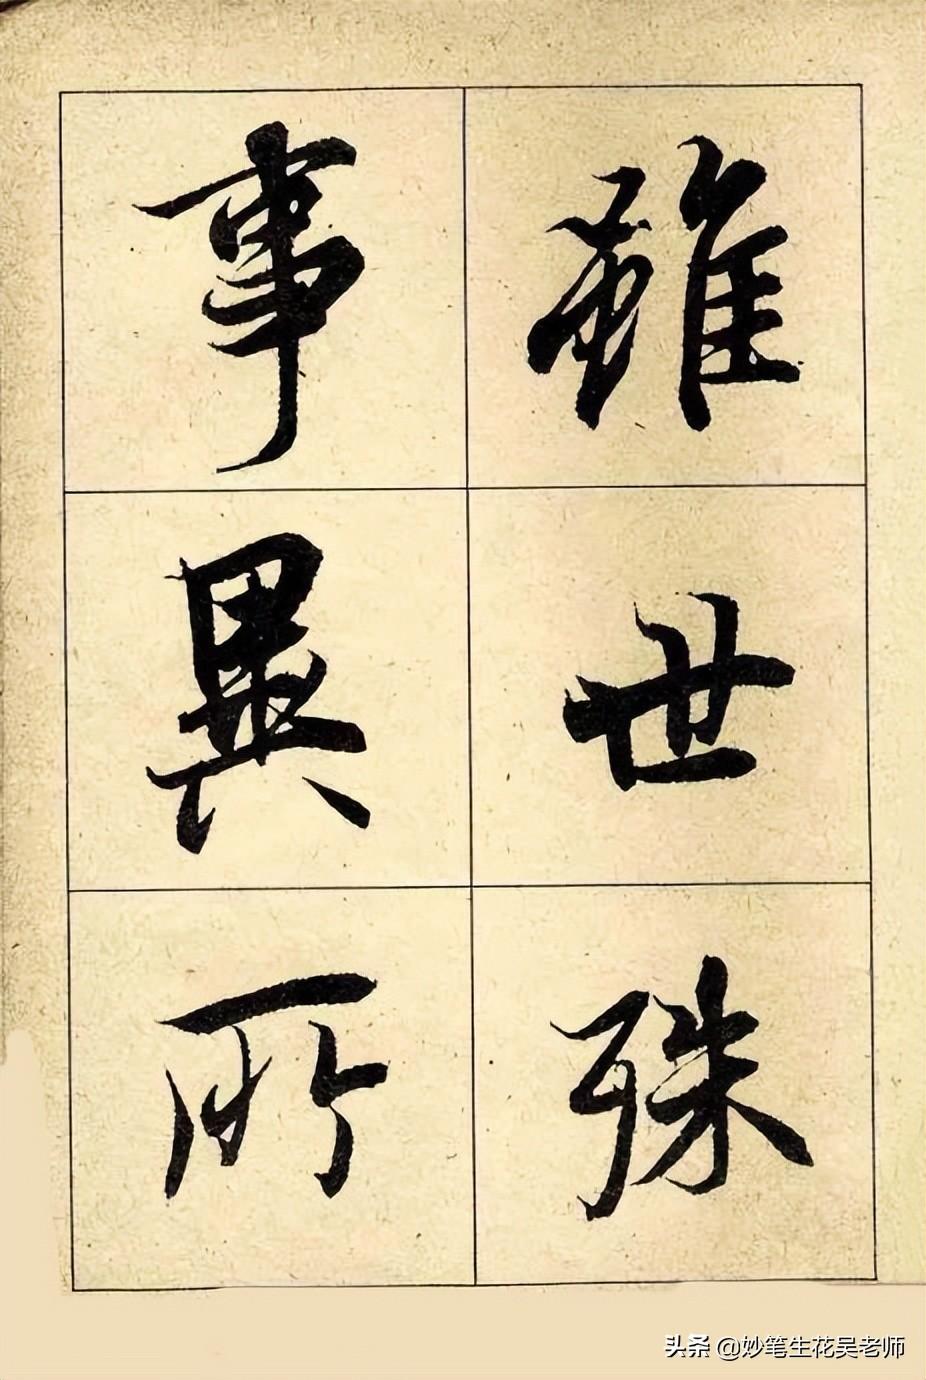 雖世殊
事異所
头条 @妙笔生花吴老师